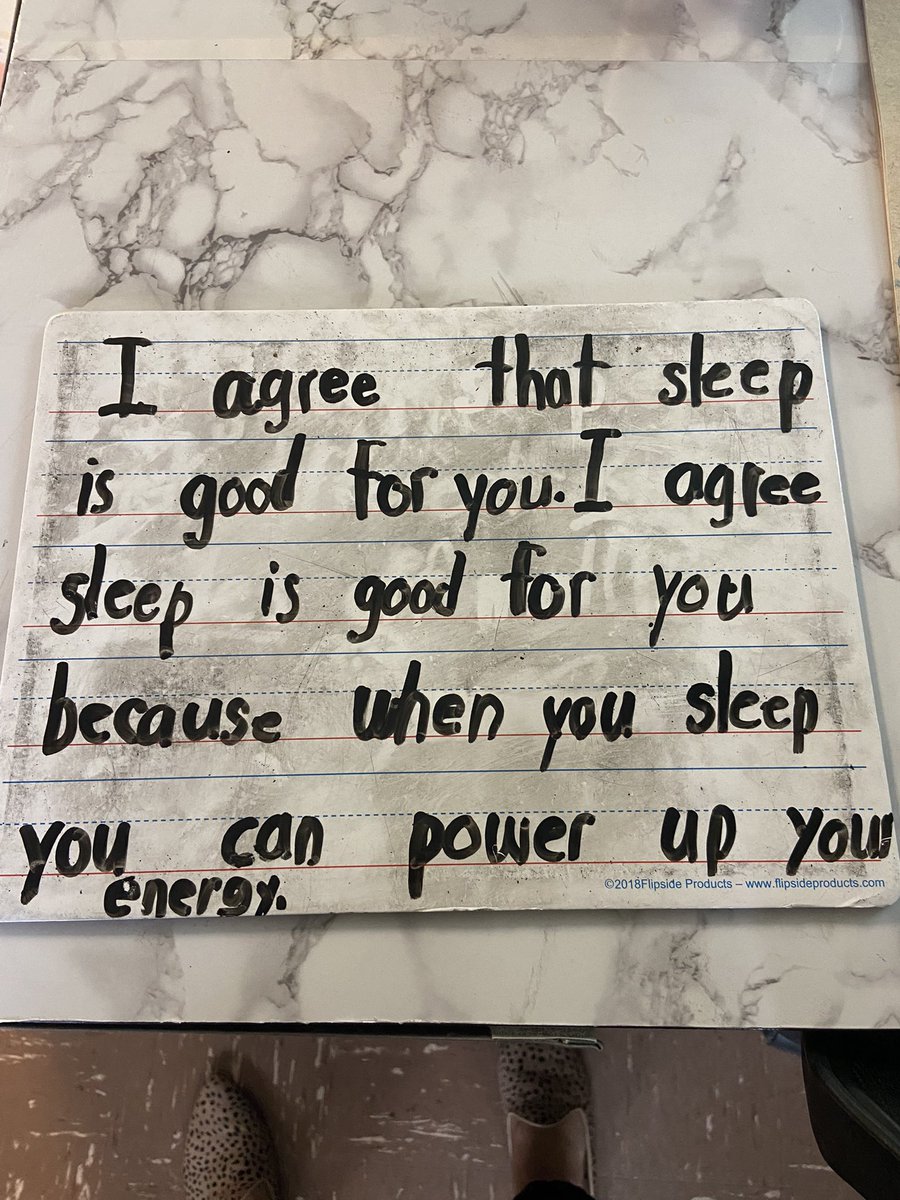 I agree that sleep
is good for you. I agree
sleep is good for you
because when you sleep
you can power up your
energy.
©2018Flipside Products – www.flipsideproducts.com